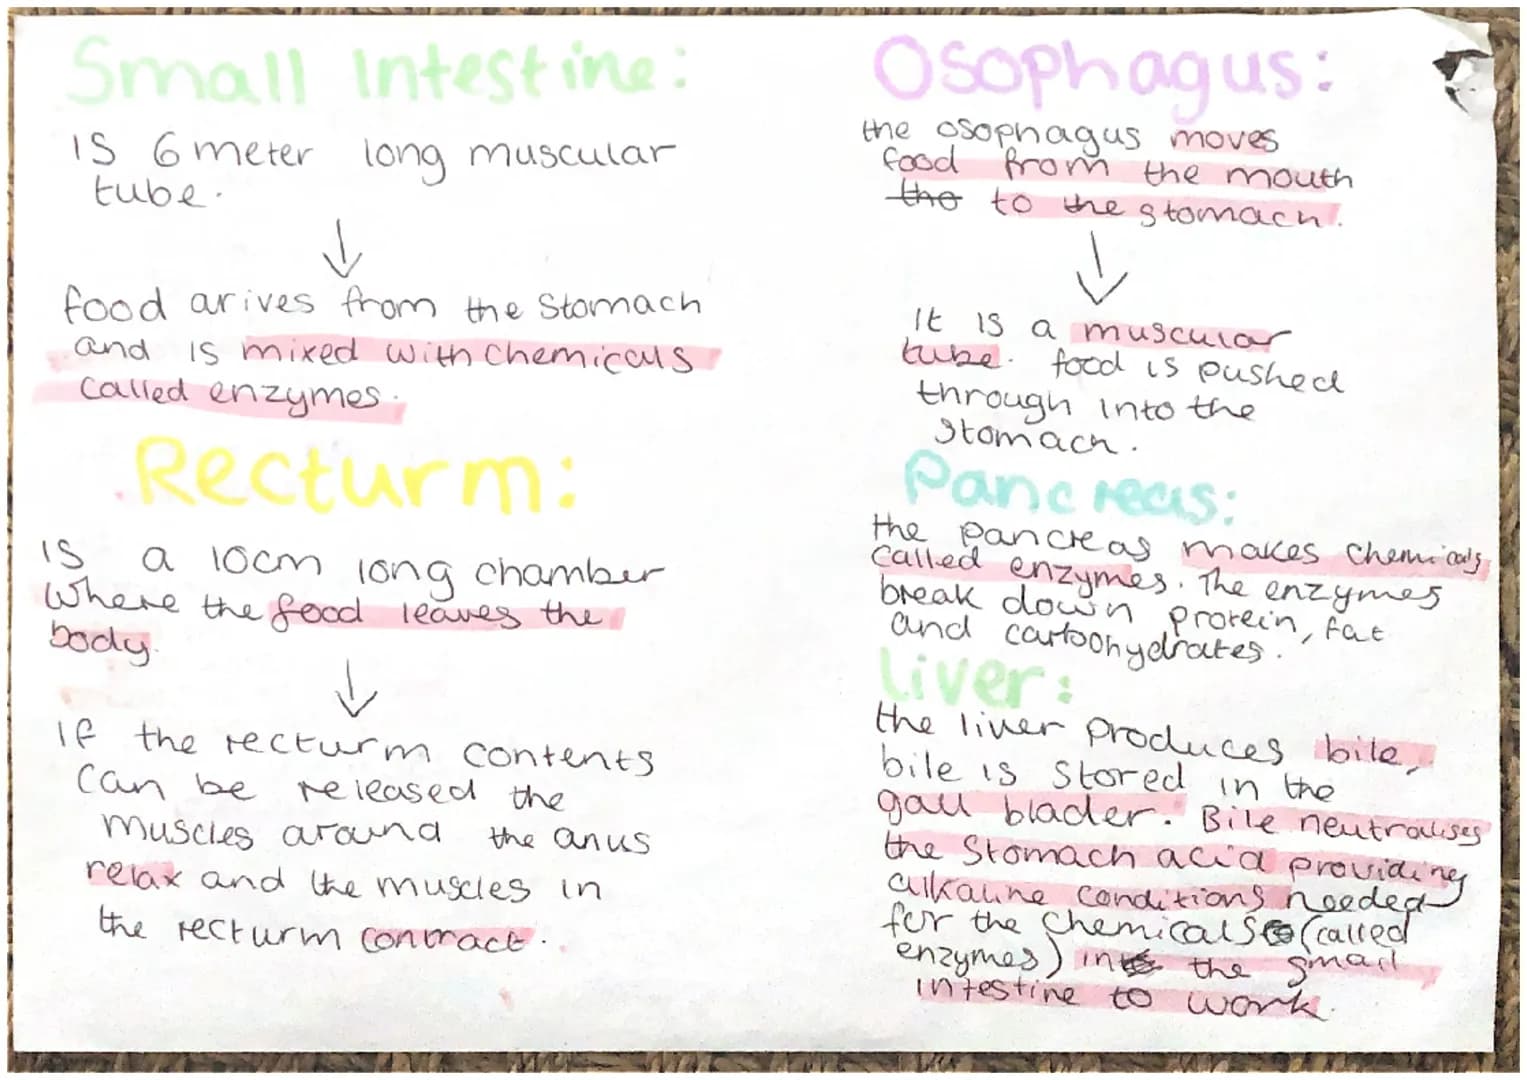 Small Intestine:
IS 6 meter long muscular
tube.
↓
food arives from the Stomach
and is mixed with chemicals
called enzymes.
Recturm:
is a 10cm long chamber
Where the food leaves the
body.
↓
If the recturm contents
can be released the
muscles around the anus
relax and the muscles in
the recturm contract.
Osophagus:
the osophagus moves
food from the mouth
the to the stomach.
↓
It is a muscular
tube. food is pushed
through into the
stomach.
Pancreas:
the pancreas makes chemicals
called enzymes. The enzymes
break down protein, fat
and carbohydrates.
Liver:
the liver produces bile,
bile is stored in the
gall blader. Bile neutralises
the stomach acid providing
alkaline conditions needed
for the chemicals (called
enzymes) in the small
intestine to work.